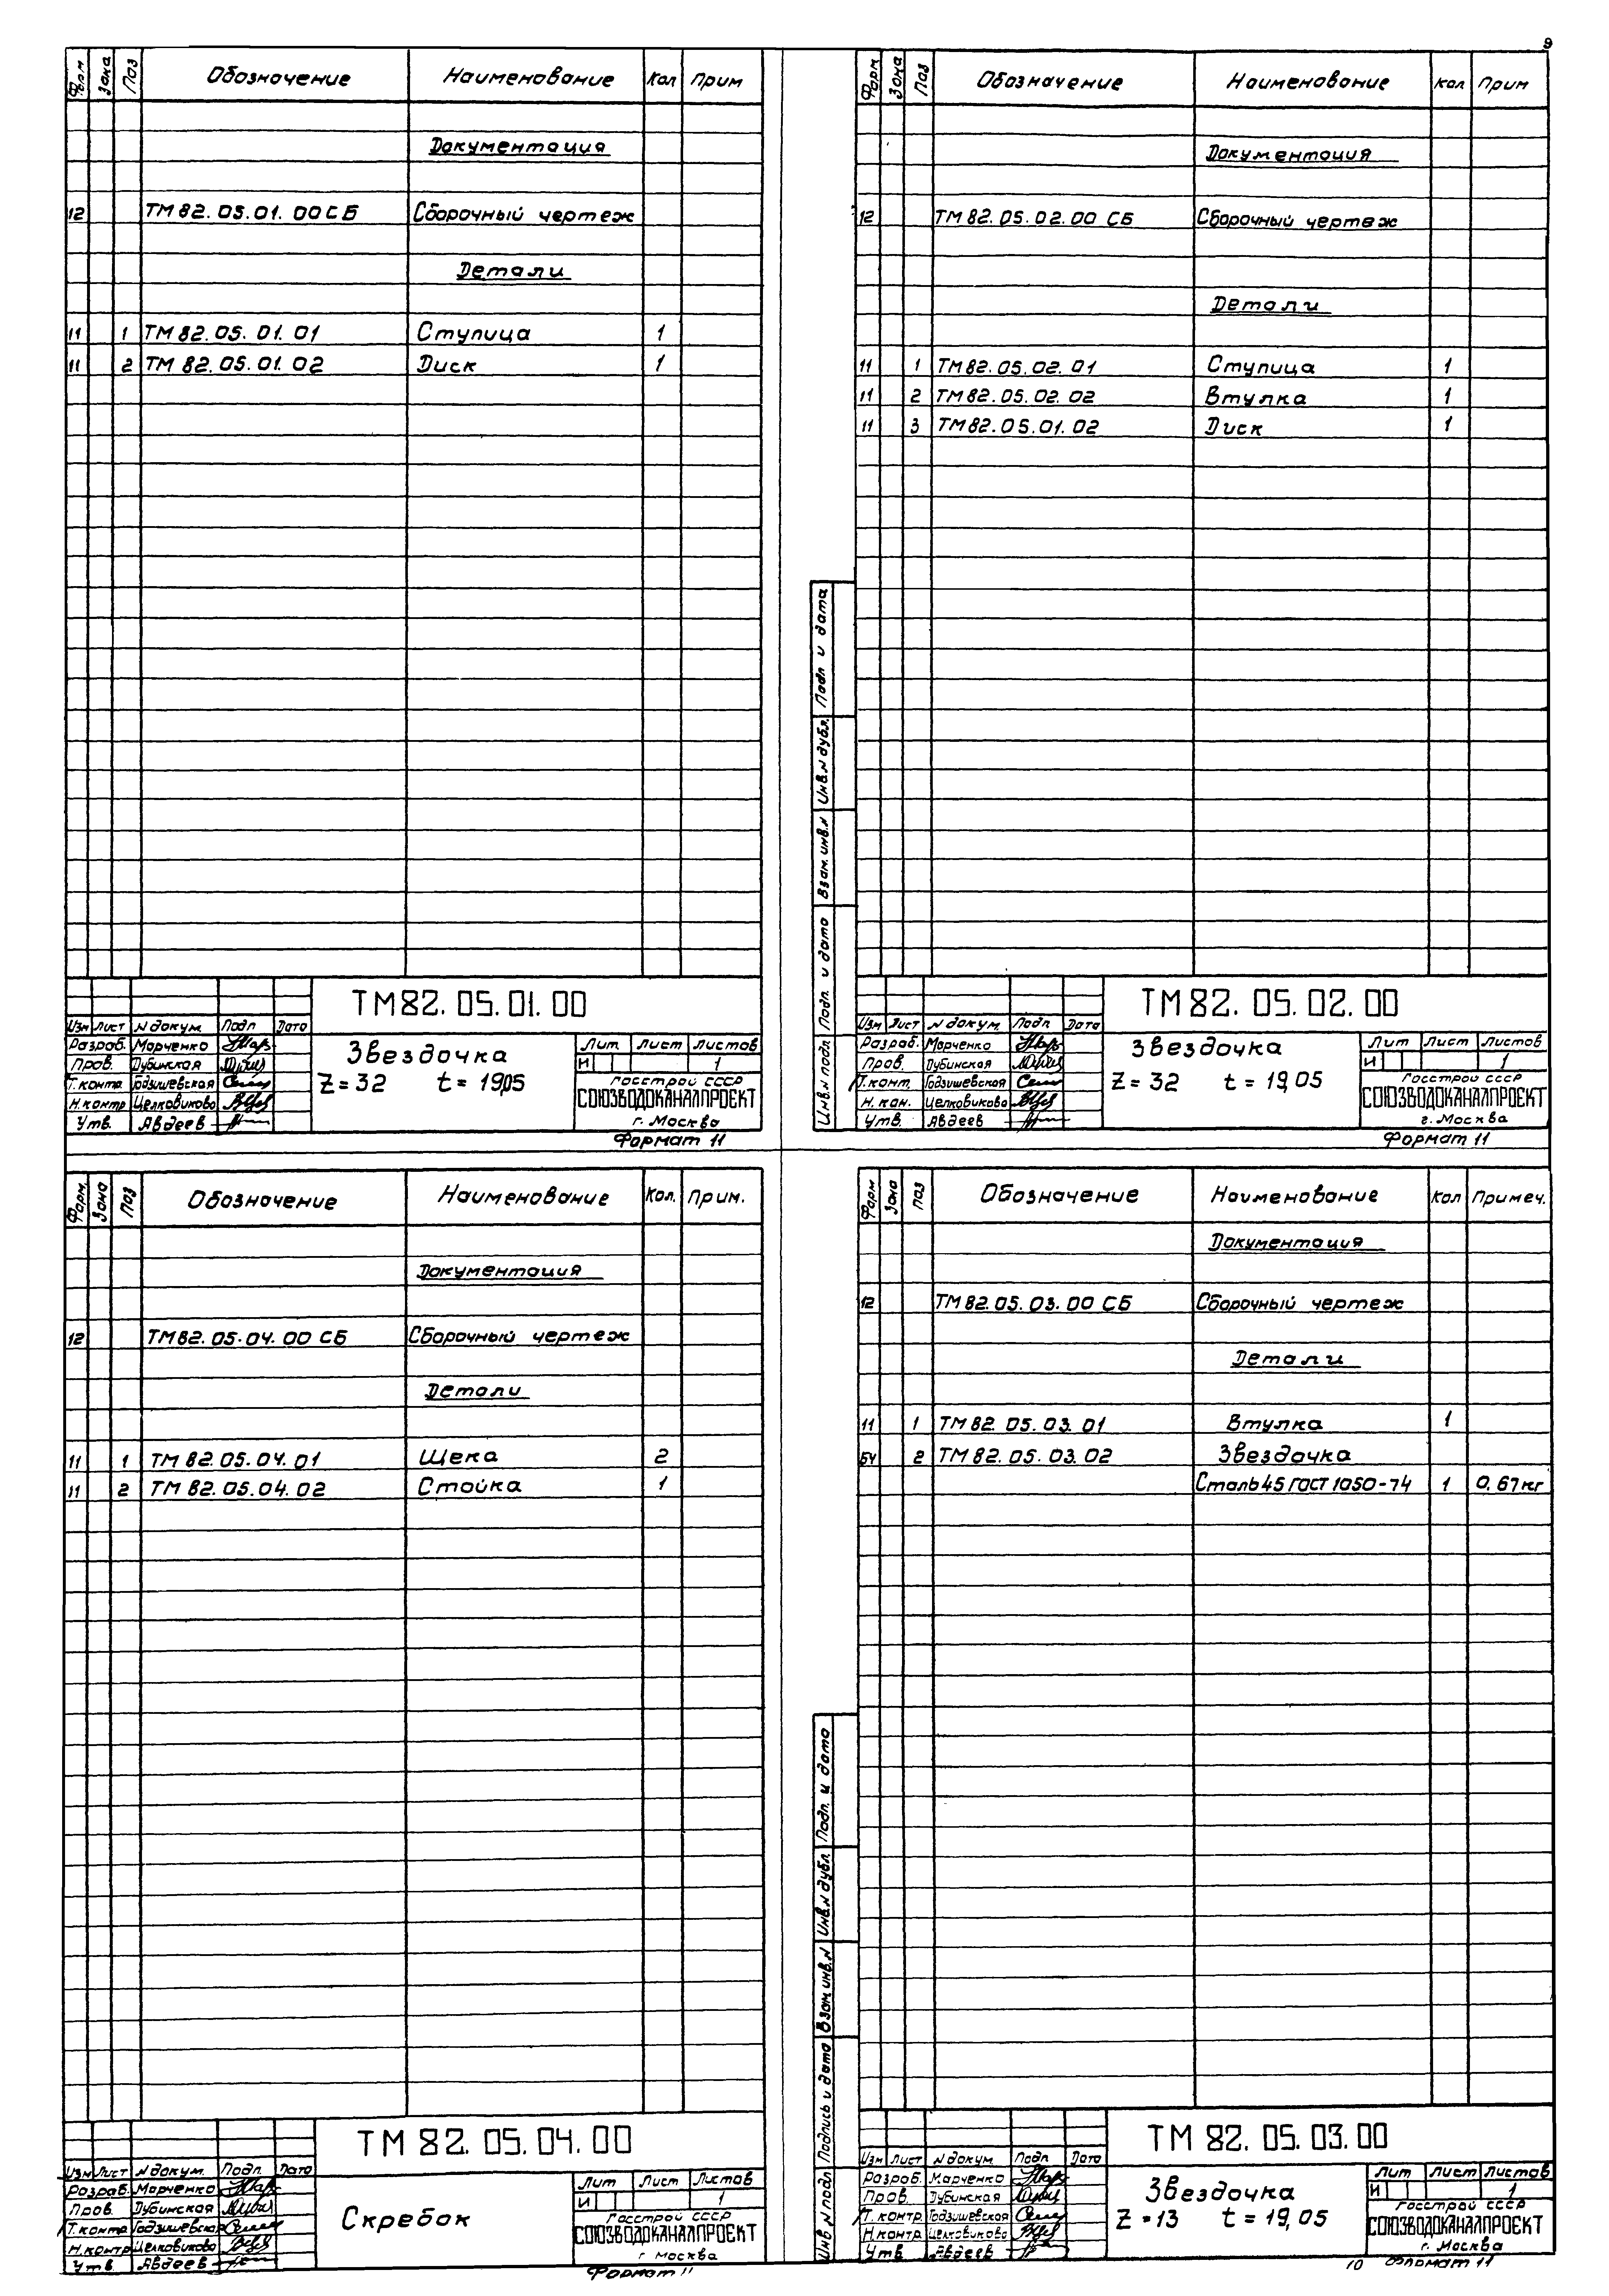 9
Форм Зона Поз Обозначение Наименование Кол Прим
Документация
12 ТМ82.05.01.00СБ Сборочный чертеж
Детали
11 1 ТМ82.05.01.01 Ступица 1
11 2 ТМ82.05.01.02 Диск 1
ТМ82.05.01.00
Изм Лист N докум. Подп Дата
Разраб. Марченко
Пров. Дубинская
Т.контр. Годзишевская
Н.контр Целковикова
Утв. Авдеев
Звездочка
Z=32 t=19,05
Лит Лист Листов
И 1
Госстрой СССР
СОЮЗВОДОКАНАЛПРОЕКТ
г. Москва
Формат 11
Форм Зона Поз Обозначение Наименование Кол Прим
Документация
12 ТМ82.05.02.00 СБ Сборочный чертеж
Детали
11 1 ТМ82.05.02.01 Ступица 1
11 2 ТМ82.05.02.02 Втулка 1
11 3 ТМ82.05.01.02 Диск 1
Инв.N подл Подп. и дата Взам. инв.N Инв.N дубл. Подп и дата
ТМ82.05.02.00
Изм Лист N докум. Подп Дата
Разраб. Марченко
Пров. Дубинская
Т.конт. Годзишевская
Н.кон. Целковикова
Утв. Авдеев
Звездочка
Z=32 t=19,05
Лит Лист Листов
И 1
Госстрой СССР
СОЮЗВОДОКАНАЛПРОЕКТ
г. Москва
Формат 11
Форм. Зона Поз Обозначение Наименование Кол. Прим.
Документация
12 ТМ82.05.04.00 СБ Сборочный чертеж
Детали
11 1 ТМ82.05.04.01 Щека 2
11 2 ТМ82.05.04.02 Стойка 1
ТМ82.05.04.00
Изм Лист N докум. Подп. Дата
Разраб. Марченко
Пров. Дубинская
Т.контр. Годзишевская
Н.контр Целковикова
Утв. Авдеев
Скребок
Лит Лист Листов
И 1
Госстрой СССР
СОЮЗВОДОКАНАЛПРОЕКТ
г Москва
Формат 11
Форм Зона Поз Обозначение Наименование Кол Примеч.
Документация
12 ТМ82.05.03.00 СБ Сборочный чертеж
Детали
11 1 ТМ82.05.03.01 Втулка 1
БЧ 2 ТМ82.05.03.02 Звездочка
Сталь45 ГОСТ 1050-74 1 0.67кг
Инв N подл Подпись и дата Взам инв.N Инв.N дубл. Подп. и дата
ТМ82.05.03.00
Изм Лист N докум. Подп Дата
Разраб. Марченко
Пров. Дубинская
Т.контр. Годзишевская
Н.контр. Целковикова
Утв Авдеев
Звездочка
Z=13 t=19,05
Лит Лист Листов
И 1
Госстрой СССР
СОЮЗВОДОКАНАЛПРОЕКТ
г. Москва
10 Формат 11